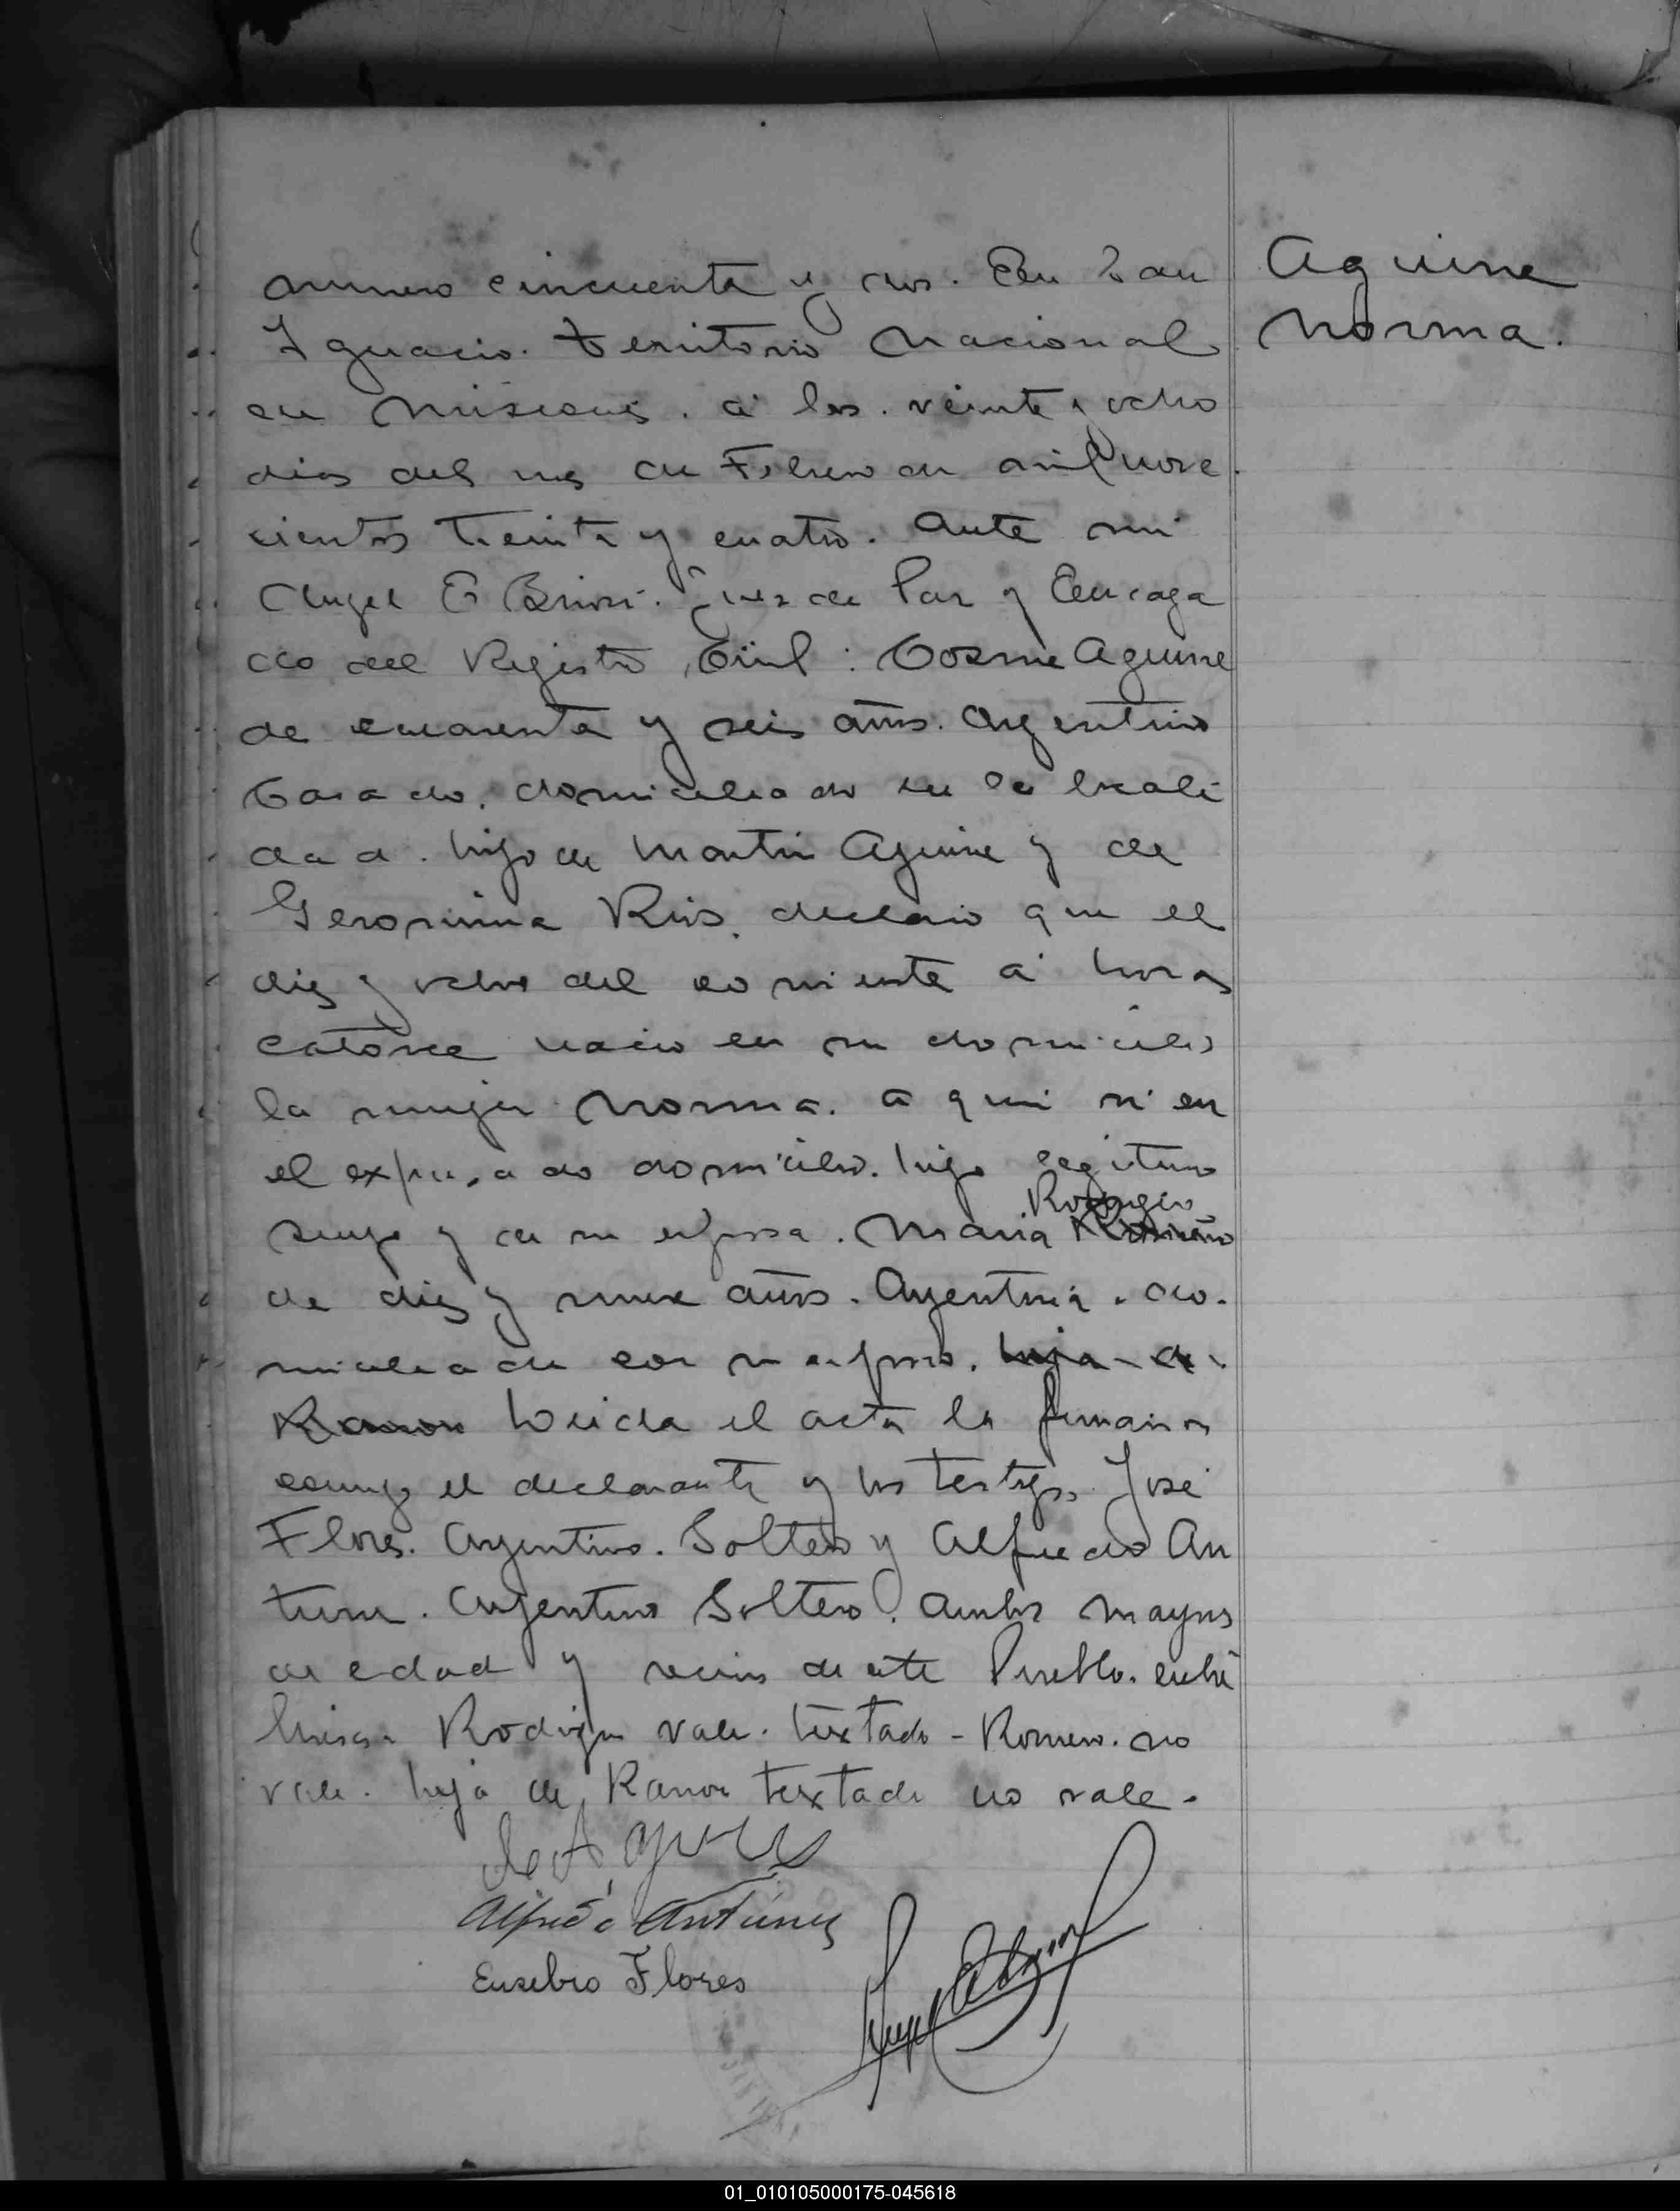 Aguirre
Norma.
Numero cincuenta y dos. En San
Ignacio. territorio Nacional
de Misiones. á los. veinte y ocho
dias del mes de Febrero de mil nove
cientos treinta y cuatro. Ante mi
Angel E Brisi. Juez de Paz y Encarga
do del Registro Civil: Cosme Aguirre
de cuarenta y seis años. Argentino
Casado. domiciliado en la locali
dad. hijo de Martin Aguirre y de
Geronima Rios. declaro que el
diez y ocho del corriente á horas
catorce nacio en su domicilio
la mujer Norma. a quien vi en
el expresado domicilio. hijo legitimo
Rodrigue
suyo y de su esposa. Maria Romero
de diez y nueve años. Argentina. do.
miciliada con su esposo. hija de.
Ramon Leida el acta la firmaron
conmigo el declarante y los testigos José
Flores. Argentino. Soltero y Alfredo An
tunez. Argentino Soltero. ambos mayores
de edad y vecinos de este Pueblo. entre
lineas Rodrigue vale. textado - Romero. no
vale. hija de Ramon textado no vale.
Alfredo Antunez
Eusebio Flores
01_010105000175-045618